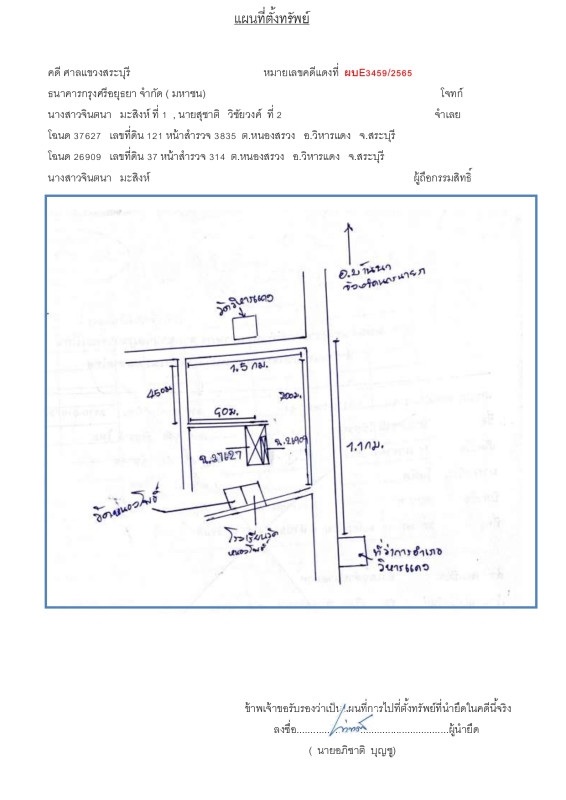 แผนที่ตั้งทรัพย์
คดี ศาลแขวงสระบุรี หมายเลขคดีแดงที่ ผบE3459/2565
ธนาคารกรุงศรีอยุธยา จำกัด ( มหาชน) โจทก์
นางสาวจินตนา มะสิงห์ ที่ 1 , นายสุชาติ วิชัยวงค์ ที่ 2 จำเลย
โฉนด 37627 เลขที่ดิน 121 หน้าสำรวจ 3835 ต.หนองสรวง อ.วิหารแดง จ.สระบุรี
โฉนด 26909 เลขที่ดิน 37 หน้าสำรวจ 314 ต.หนองสรวง อ.วิหารแดง จ.สระบุรี
นางสาวจินตนา มะสิงห์ ผู้ถือกรรมสิทธิ์
อ.บ้านนา
จังหวัดนครนายก
วัดวิหารแดง
1.5 กม.
450ม
200ม.
40ม.
1.1 กม.
ฉ.37627
วัดหนองโพธิ์
โรงเรียนวัด
หนองโพธิ์
ที่ว่าการอำเภอ
วิหารแดง
ข้าพเจ้าขอรับรองว่าเป็นแผนที่การไปที่ตั้งทรัพย์ที่นำยึดในคดีนี้จริง
ลงชื่อ.....................................................ผู้นำยึด
( นายอภิชาติ บุญชู)